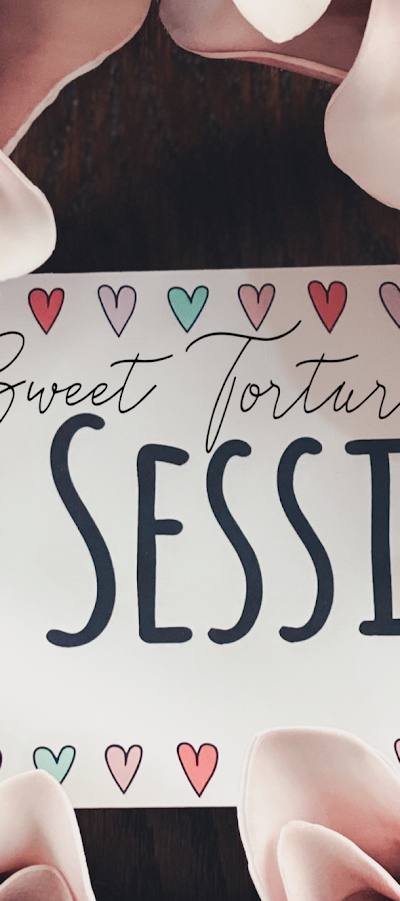 Sweet Tortur
SESSI